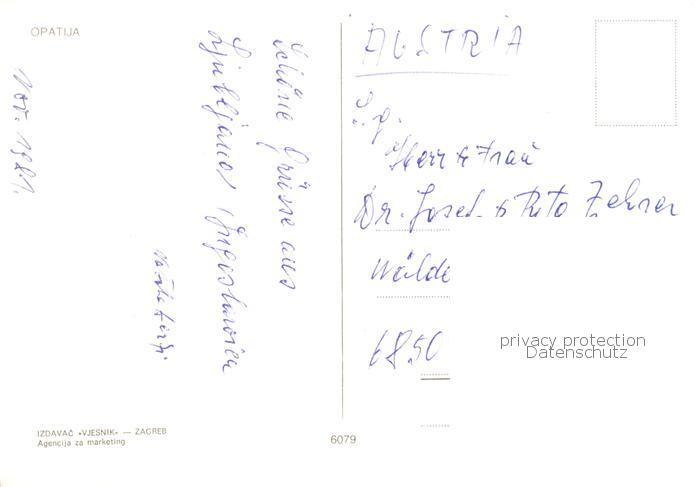 OPATIJA
Nov. 1981.
Schöne Grüsse aus
Ljubljana, Jugoslawien
AUSTRIA
S.g.
Herr & Frau
Dr. Josef & Rita Zehrer
Wälde
6850
privacy protection
Datenschutz
IZDAVAČ «VJESNIK» — ZAGREB
Agencija za marketing
6079